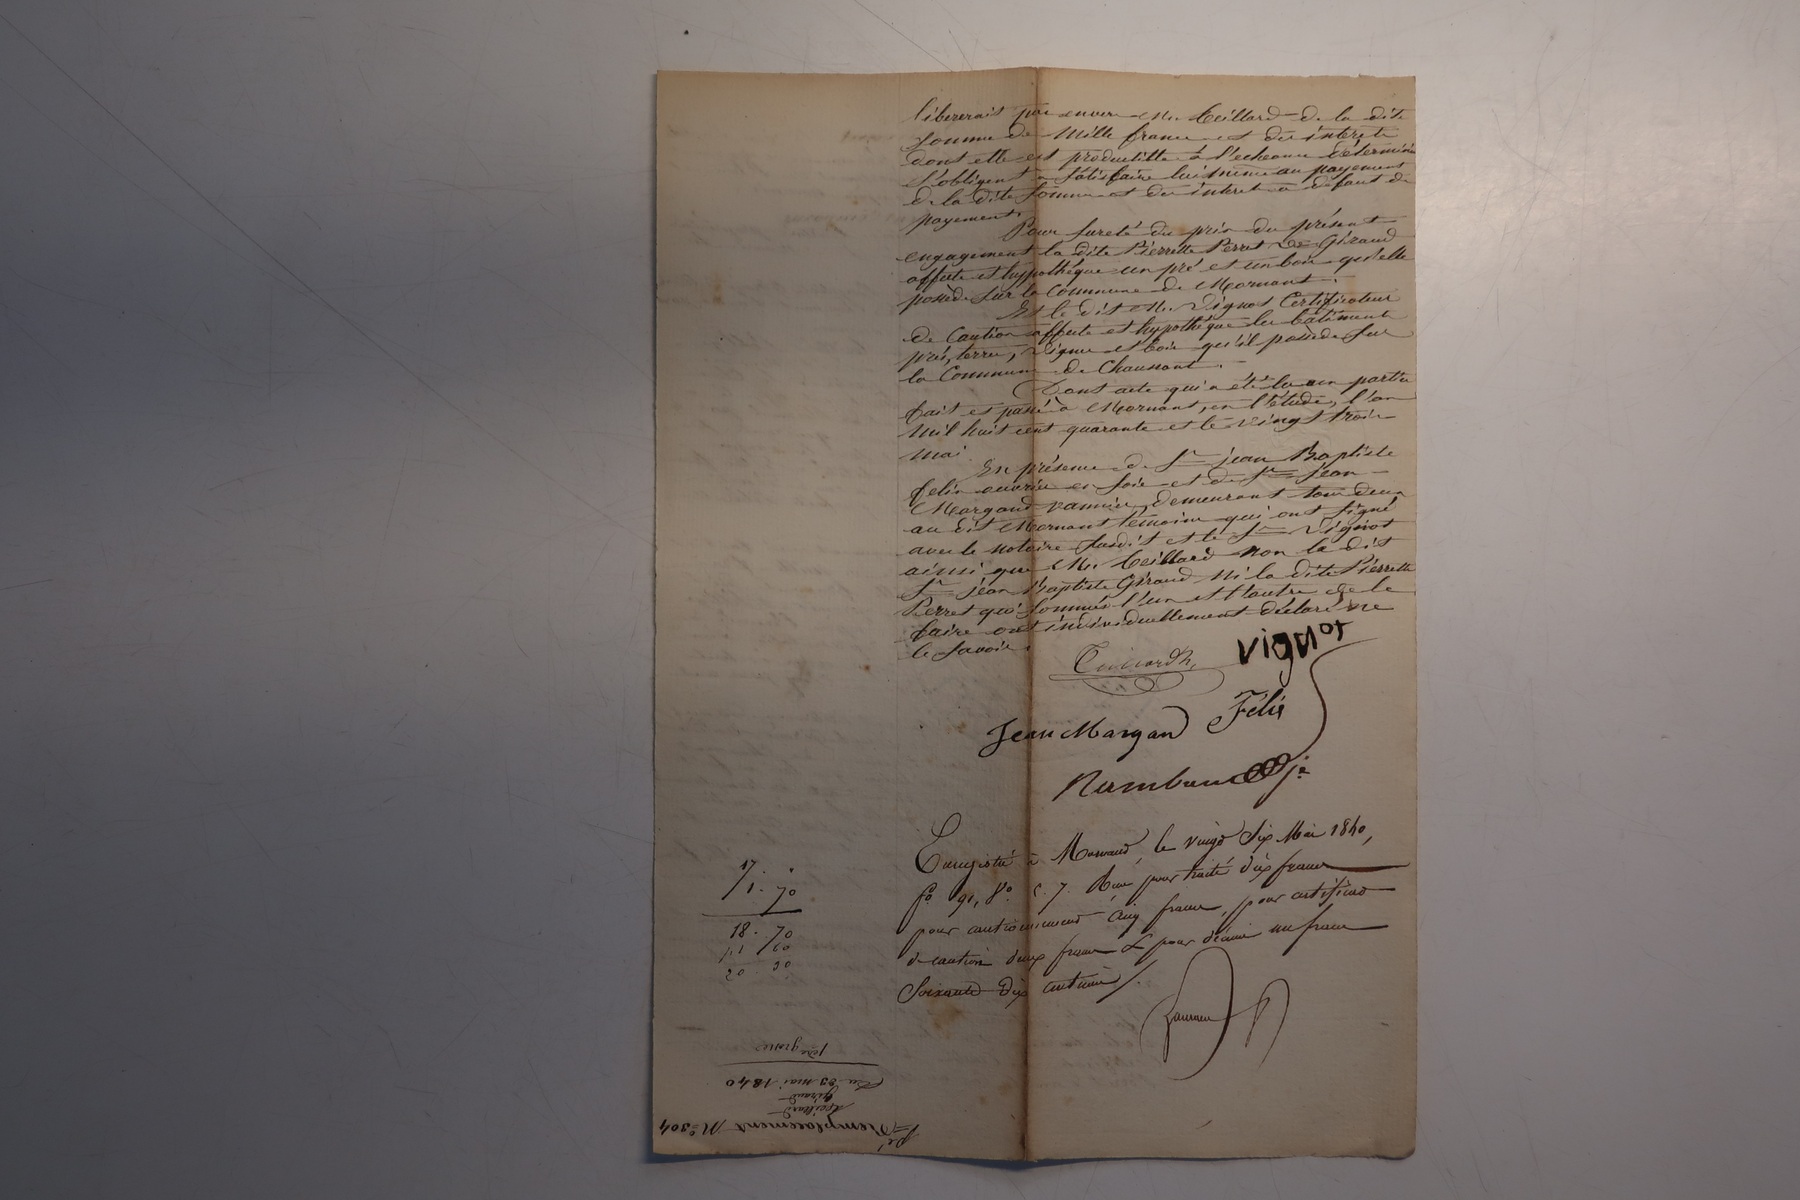 libererait pas envers Mr. Teillard de la dite
somme de Mille francs et des interets
dont elle est productitte à l'echeance déterminée
s'obligent à satisfaire lui même au payement
de la dite somme et des interets à défaut de
payement.
Pour sureté du prix du présent
engagement la dite Pierrette Perret de Géraud
affecte et hypothéque un pré et un bois qu'elle
possède sur la Commune de Mornant.
Et le dit Mr. Vignot Certificateur
de Caution affecte et hypothéque les bâtiments
prés, terres, Vignes et bois qu'il possède sur
la Commune de Chaussant.
Dont acte qui a été lu aux parties
fait et passé à Mornant, en l'étude, l'an
Mil huit cent quarante et le vingt trois
Mai.
En présence de Sr. jean Baptiste
felix ouvrier en soie et de Sr. jean
Margand vannier, demeurant tous deux
au dit Mornant témoins qui ont signé
avec le notaire susdit et le Sr. Vignot
ainsi que Mr. Teillard non le dit
Sr. jean Baptiste Géraud Ni la dite Pierrette
Perret qui sommés l'un et l'autre de le
faire ont individuellement déclaré ne
le savoir.
vignot
Jean Margand Félix
Enregistré à Mornant, le vingt Six Mai 1840,
fo. 91, Vo. c. 7. Reçu pour traité dix francs
pour cautionnement cinq francs, pour certificat
de caution deux francs & pour décime un franc
Soixante dix centimes /.
17 .
1 . 70
18 . 70
20 . 30
Remplacement No 304
Teillard
Géraud
Du 23 mai 1840
1ere grosse